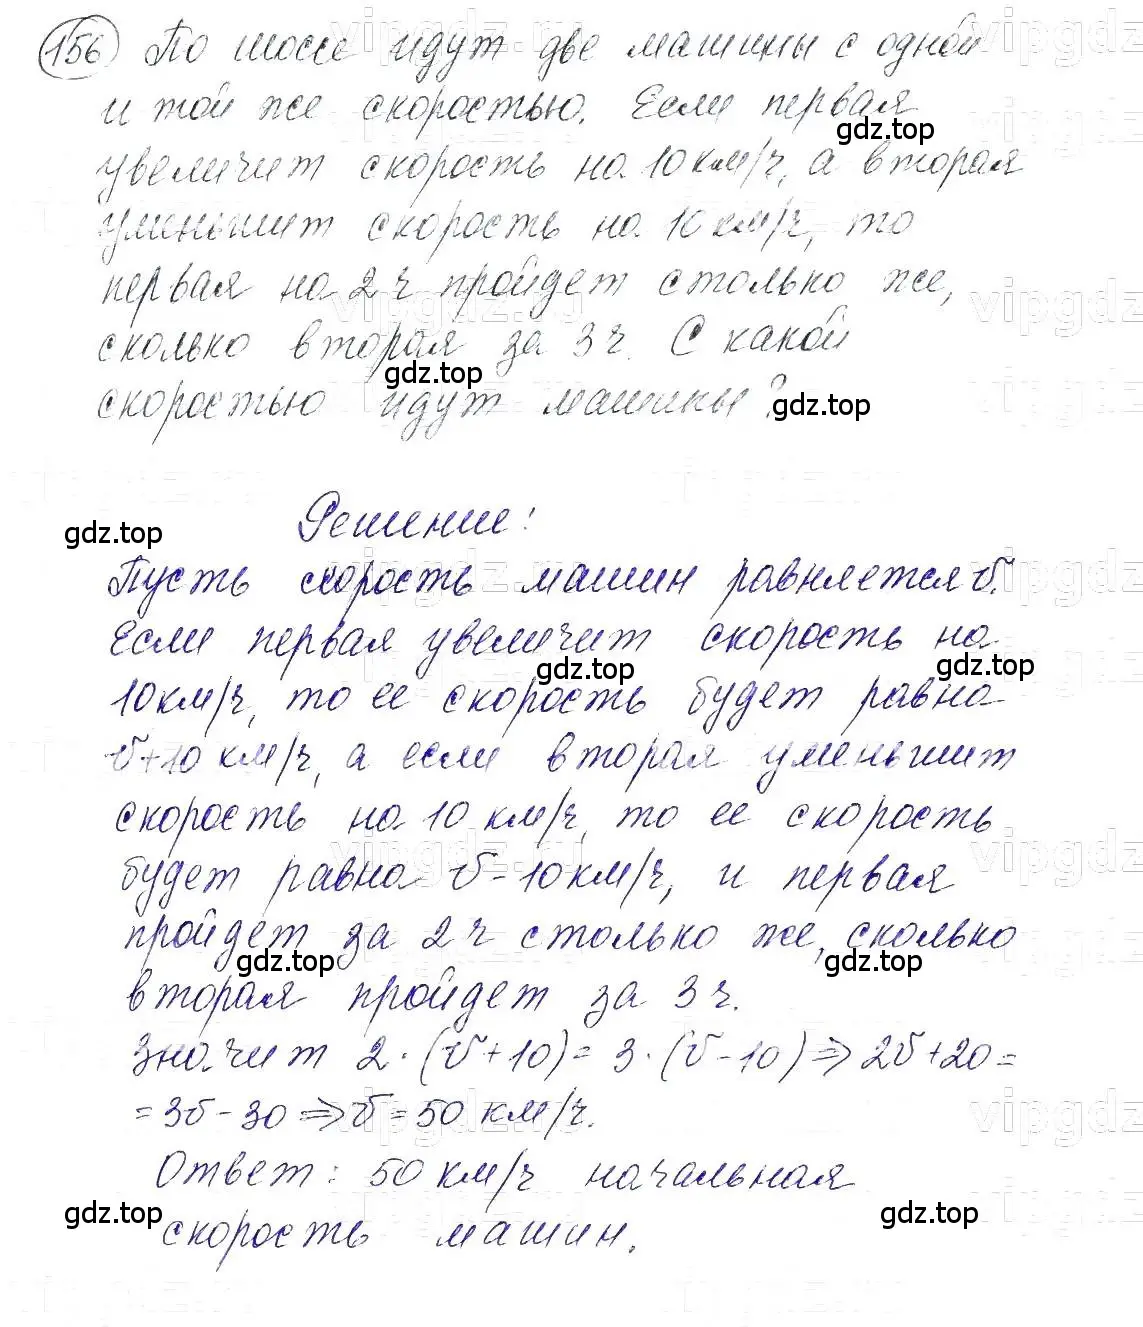 156 По шоссе идут две машины с одной
и той же скоростью. Если первая
gdz.top
увеличит скорость на 10 км/ч, а вторая
уменьшит скорость на 10 км/ч, то
первая на 2 ч пройдет столько же,
сколько вторая за 3 ч. С какой
gdz.top
скоростью идут машины?
gdz.top
Решение:
gdz.top
Пусть скорость машин равняется v.
Если первая увеличит скорость на
gdz.top gdz.top
10 км/ч, то ее скорость будет равна
v+10 км/ч, а если вторая уменьшит
скорость на 10 км/ч, то ее скорость
будет равна v-10 км/ч, и первая
пройдет за 2 ч столько же, сколько
gdz.top gdz.top
вторая пройдет за 3 ч.
Значит 2·(v+10)= 3·(v-10)⇒2v+20=
=3v-30⇒v=50 км/ч.
Ответ: 50 км/ч начальная
gdz.top gdz.top
скорость машин.